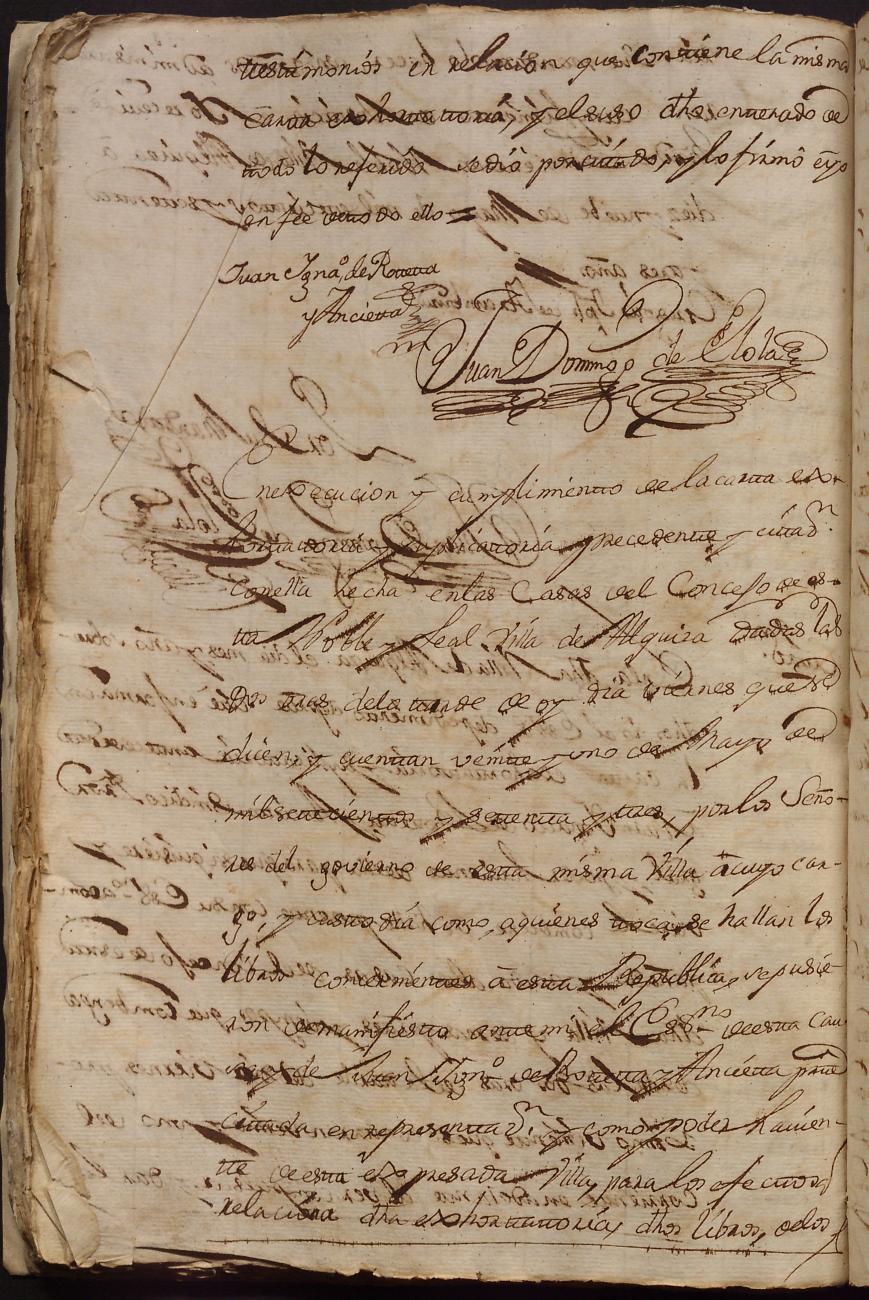 testimonios en relacion que contiene la misma
carta exhortatoria, y el suso dho enterado de
todo lo referido se dió por citado, y lo firmó e yo
en fee de todo ello =
Juan Ignaº. de Rotetta
y Ancietta
Juan Domingo de Elola
En execucion y cumplimiento de la carta ex-
hortatoria y suplicatoria precedente y citaon.
con ella hecha en las Casas del Concejo de es-
ta Noble y Leal Villa de Alquiza dadas las
dos oras de la tarde de oy dia viernes que se
dicen, y quentan veinte y uno de Mayo de
mil setecientos y setenta y tres, por los Seño-
res del govierno de esta misma Villa à cuyo car-
go, y custodia como, a quienes toca, se hallan los
libros concernientes à esta Republica, se pusie-
ron de manifiesto ante mi el Essno de esta cau
sa, y de Juan Ignº. de Rotetta y Ancietta parte
citada en representaon y como poder havien-
te de esta expresada Villa, para los efectos q
relaciona dha exhortatoria, dhos libros, de los